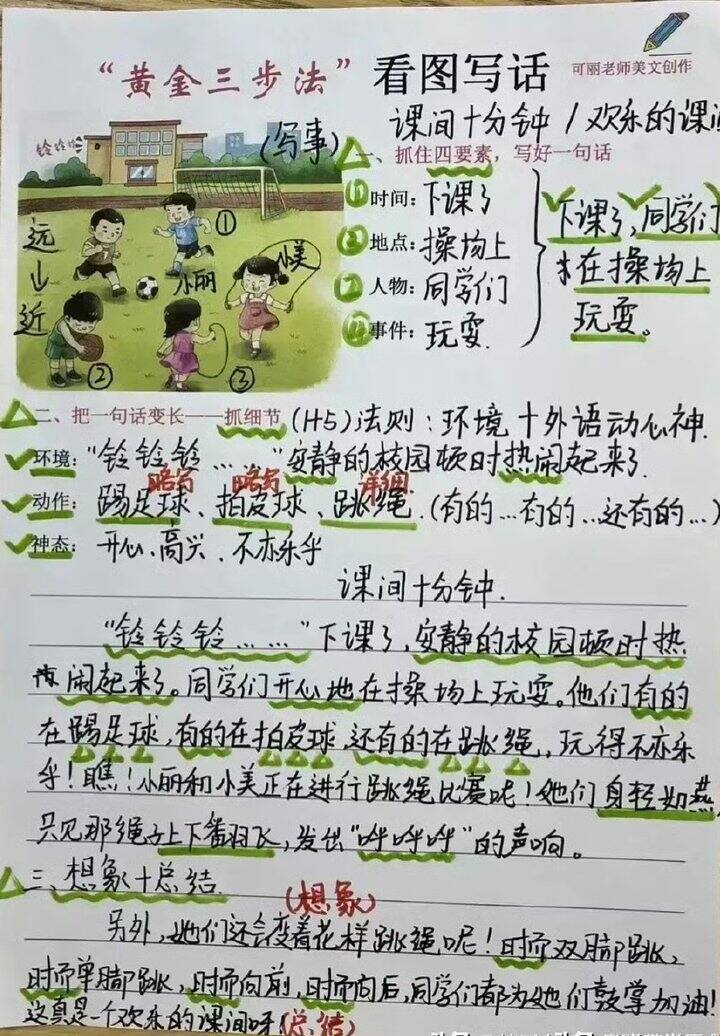 “黄金三步法”看图写话
可丽老师美文创作
课间十分钟/欢乐的课间
铃铃铃
(写事)
一、抓住四要素，写好一句话
①时间：下课了
②地点：操场上
人物：同学们
事件：玩耍
下课了，同学们
在操场上
玩耍。
远
近
①
小丽
小美
②
③
二、把一句话变长——抓细节(1+5)法则：环境+外语动心神.
环境：“铃铃铃……”安静的校园顿时热闹起来了.
略写 略写 详细
动作：踢足球、拍皮球、跳绳.(有的…有的…还有的…)
神态：开心、高兴、不亦乐乎
课间十分钟.
“铃铃铃……”下课了，安静的校园顿时热
闹起来了。同学们开心地在操场上玩耍。他们有的
在踢足球，有的在拍皮球，还有的在跳绳，玩得不亦乐
乎！瞧！小丽和小美正在进行跳绳比赛呢！她们身轻如燕，
只见那绳子上下翻飞，发出“呼呼呼”的声响。
三、想象+总结.
(想象)
另外，她们还会变着花样跳绳呢！时而双脚跳，
时而单脚跳，时而向前，时而向后，同学们都为她们鼓掌加油！
这真是一个欢乐的课间呀(总结)